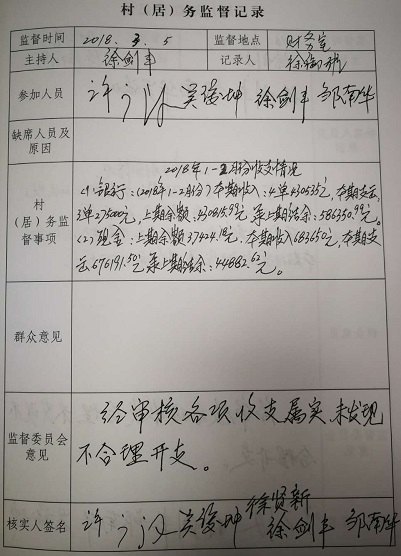 村（居）务监督记录
监督时间 2018.3.5 监督地点 财务室
主持人 徐剑丰 记录人 徐
参加人员 许 吴葰坤 徐剑丰 邹南华
缺席人员及
原因
2018年1-2月份收支情况
村
（居）务监
督事项
(1)银行:(2018年1-2月份)本期收入:4单230535元,本期支出:
3单27500元,上期余额: 元 累上期结余:586350.99元。
(2)现金:上期余额37424.12元,本期收入683650元,本期支
出676191.50元 累上期结余:44882.62元。
群众意见
监督委员会
意见
经审核各项收支属实,未发现
不合理开支。
核实人签名 许 吴葰坤 徐贤新 徐剑丰 邹南华